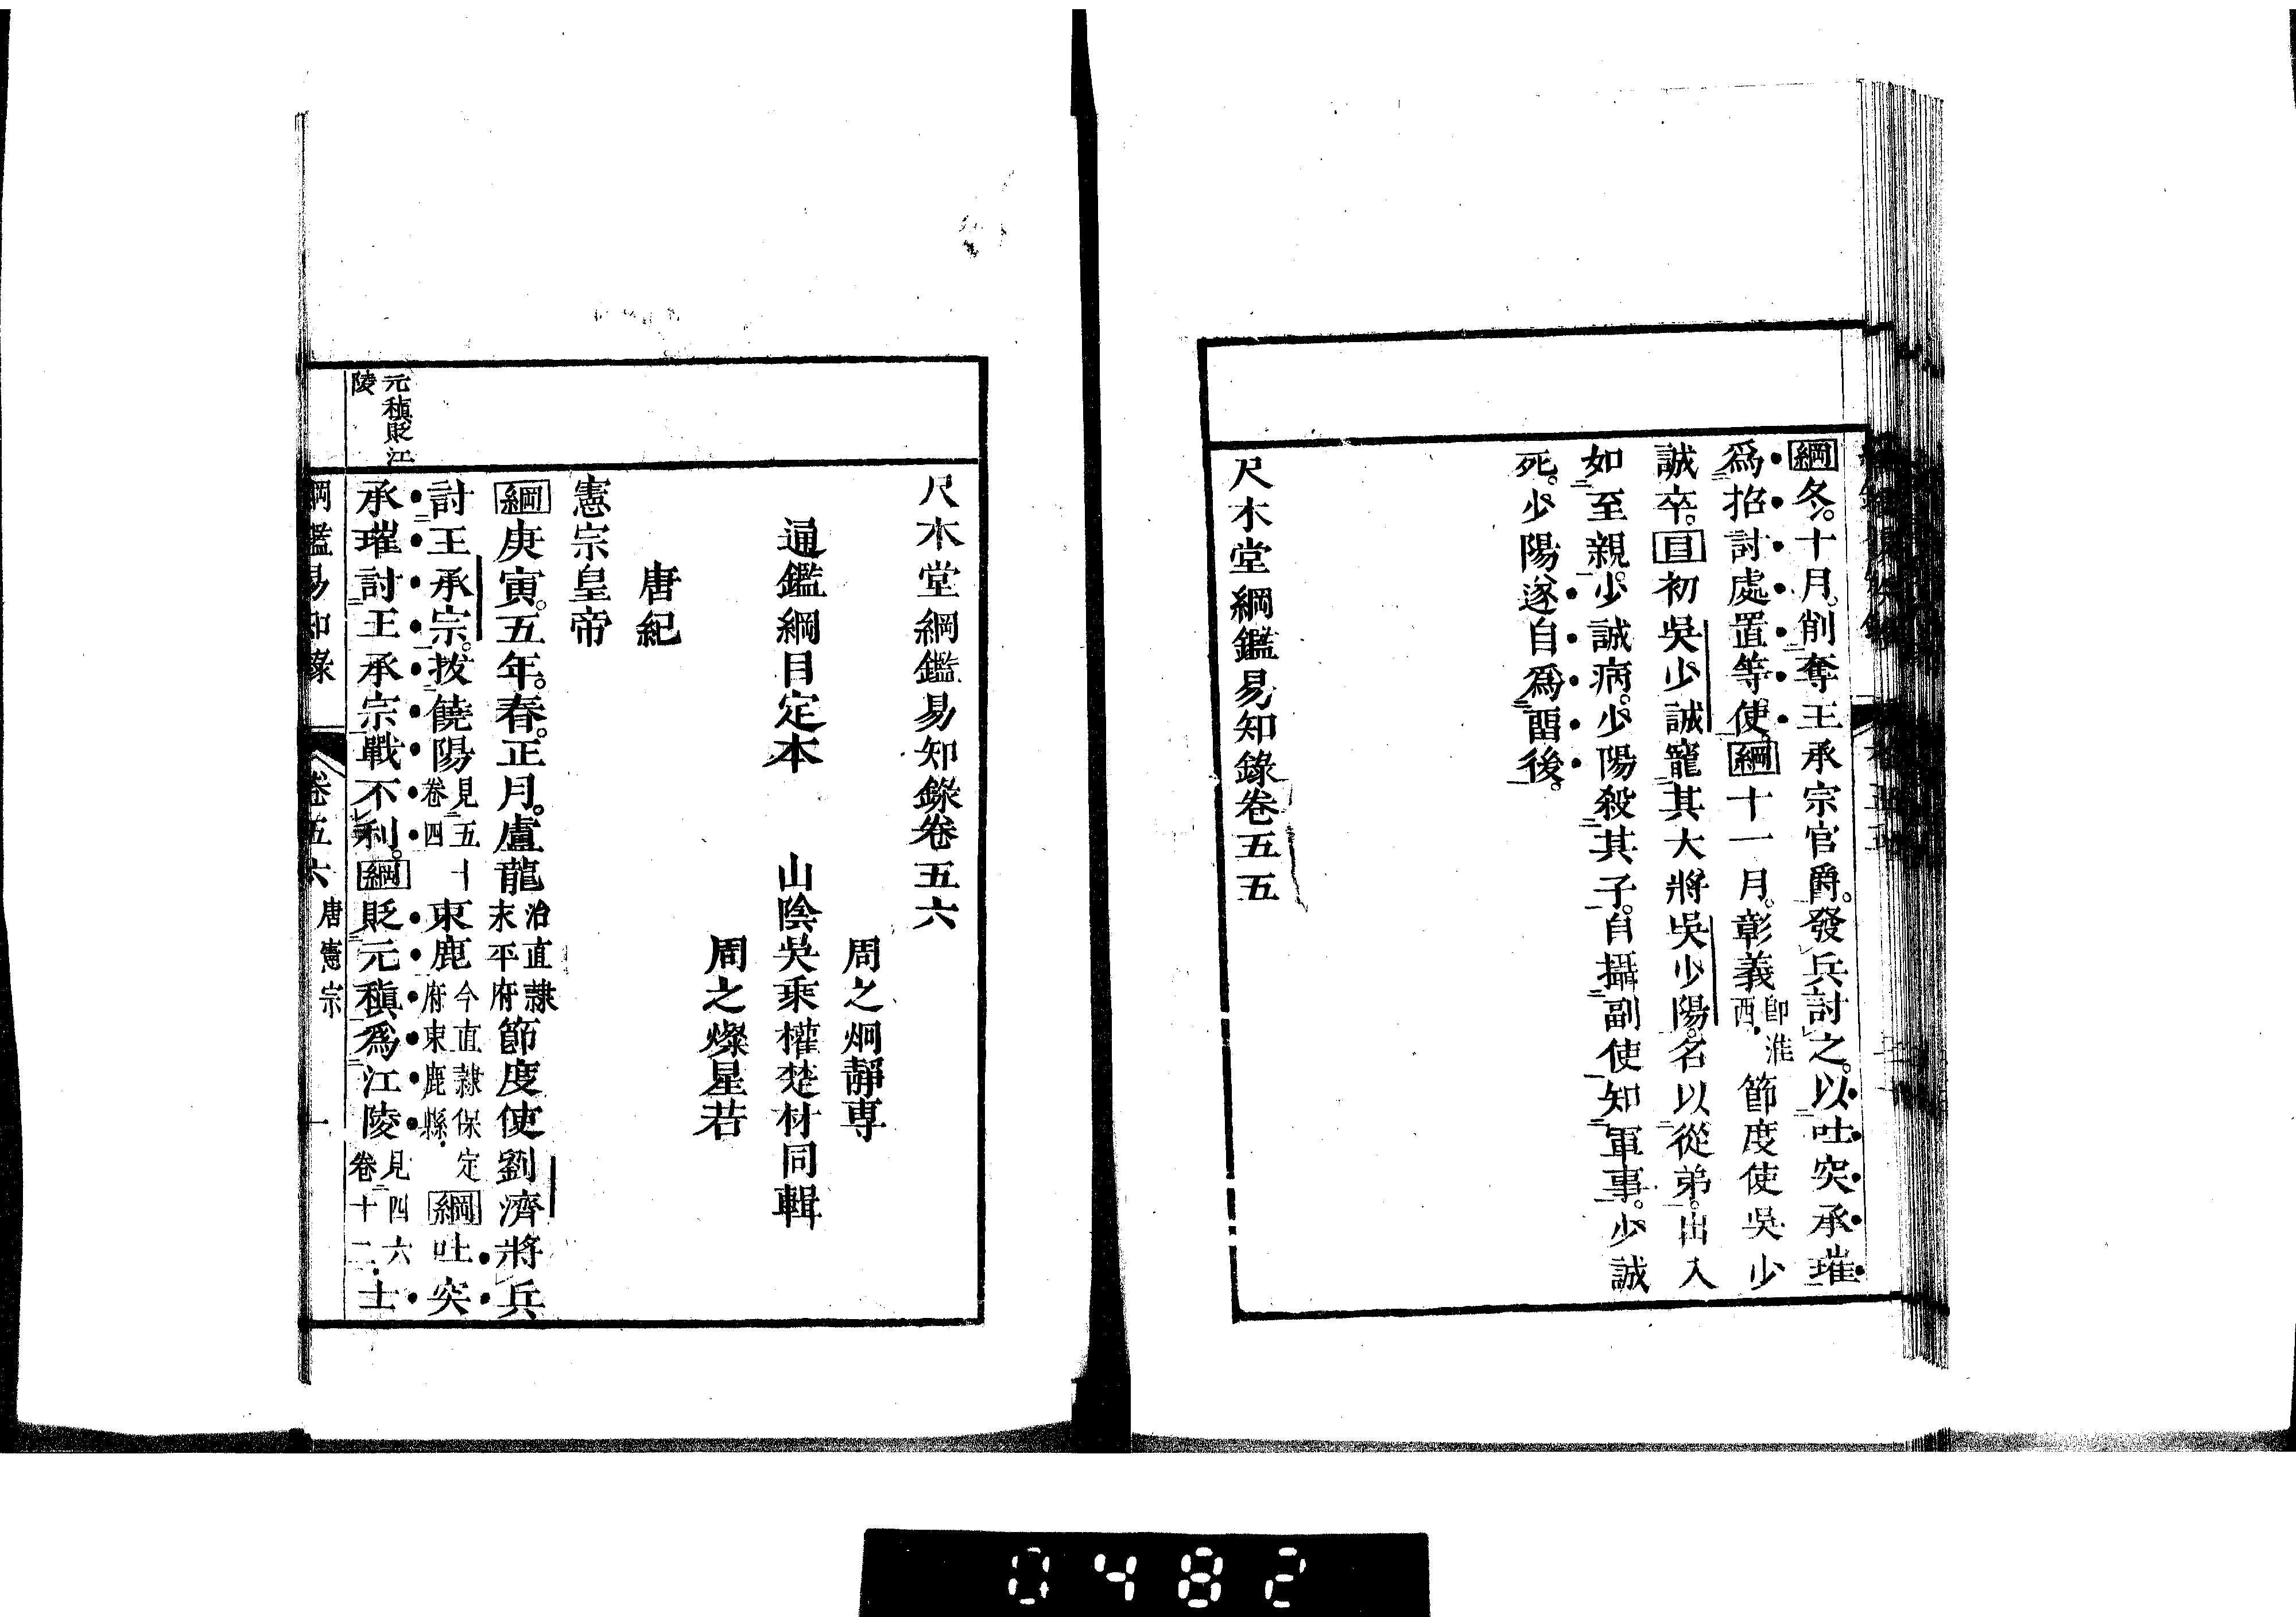 綱冬。十月。削奪王承宗官爵。發兵討之。以吐突承璀
爲招討處置等使。綱十一月。彰義卽淮西節度使吳少
誠卒。目初吳少誠寵其大將吳少陽。名以從弟。出入
如至親。少誠病。少陽殺其子。自攝副使知軍事。少誠
死。少陽遂自爲留後。
尺木堂綱鑑易知錄卷五五
尺木堂綱鑑易知錄卷五六
周之炯靜專
通鑑綱目定本 山陰吳乘權楚材同輯
周之燦星若
唐紀
憲宗皇帝
綱庚寅。五年。春。正月。盧龍治直隸末平府節度使劉濟將兵
討王承宗。拔饒陽見五十卷四東鹿今直隸保定府東鹿縣綱吐突
元稹貶江
陵
承璀討王承宗戰不利。綱貶元稹爲江陵見四六卷十二士
綱鑑易知錄 卷五六 唐憲宗 一
0482